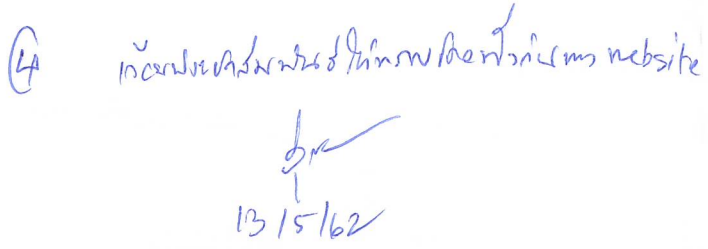 ④ เรียนประชาสัมพันธ์ให้ทราบโดยทั่วกันทาง website
13/5/62